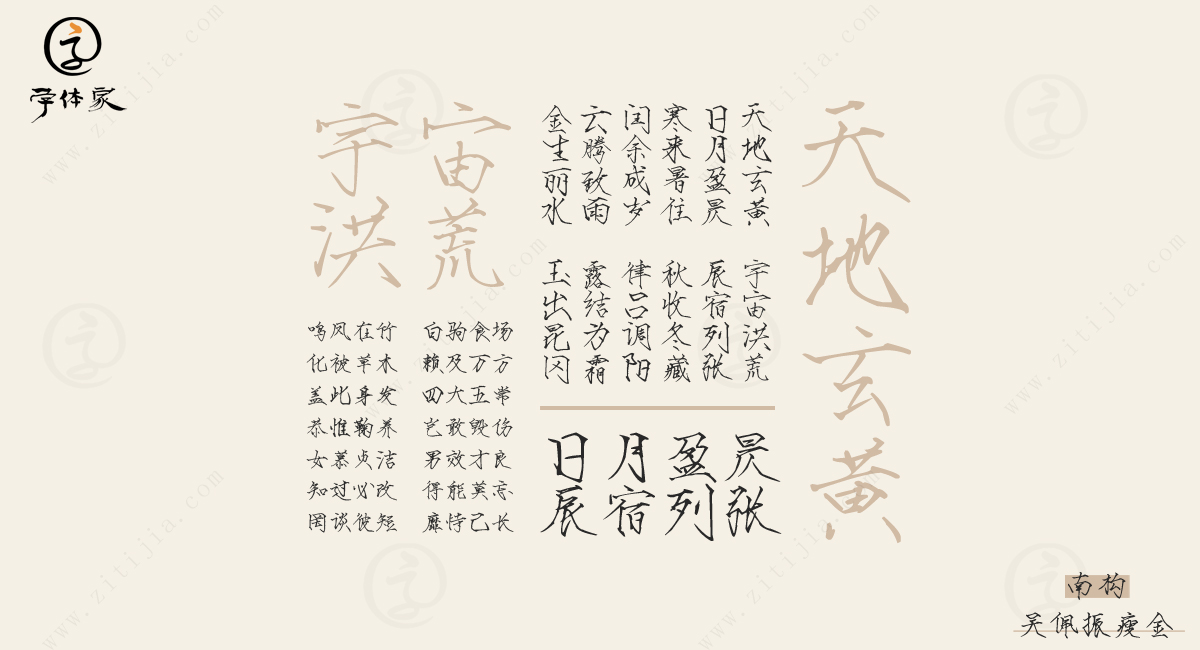 字体家
天地玄黄
天地玄黄
日月盈昃
寒来暑往
闰余成岁
云腾致雨
金生丽水
宇宙洪荒
辰宿列张
秋收冬藏
律吕调阳
露结为霜
玉出昆冈
日月盈昃
辰宿列张
宇宙
洪荒
鸣凤在竹 白驹食场
化被草木 赖及万方
盖此身发 四大五常
恭惟鞠养 岂敢毁伤
女慕贞洁 男效才良
知过必改 得能莫忘
罔谈彼短 靡恃己长
南构
吴佩振瘦金
www.zitijia.com
www.zitijia.com
www.zitijia.com
www.zitijia.com
www.zitijia.com
www.zitijia.com
www.zitijia.com